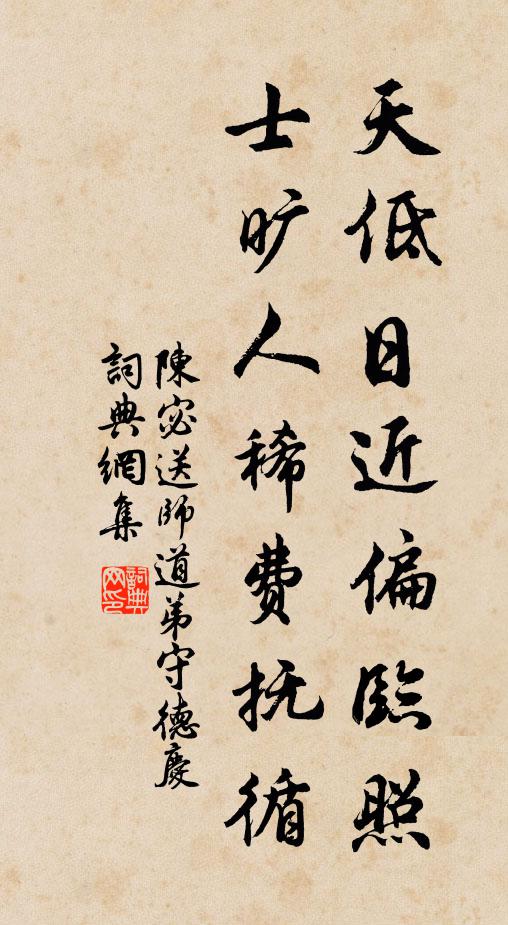 天低日近偏臨照
士旷人稀费抚循
陳宓送師道弟守德慶
詞典網集
詞典网印